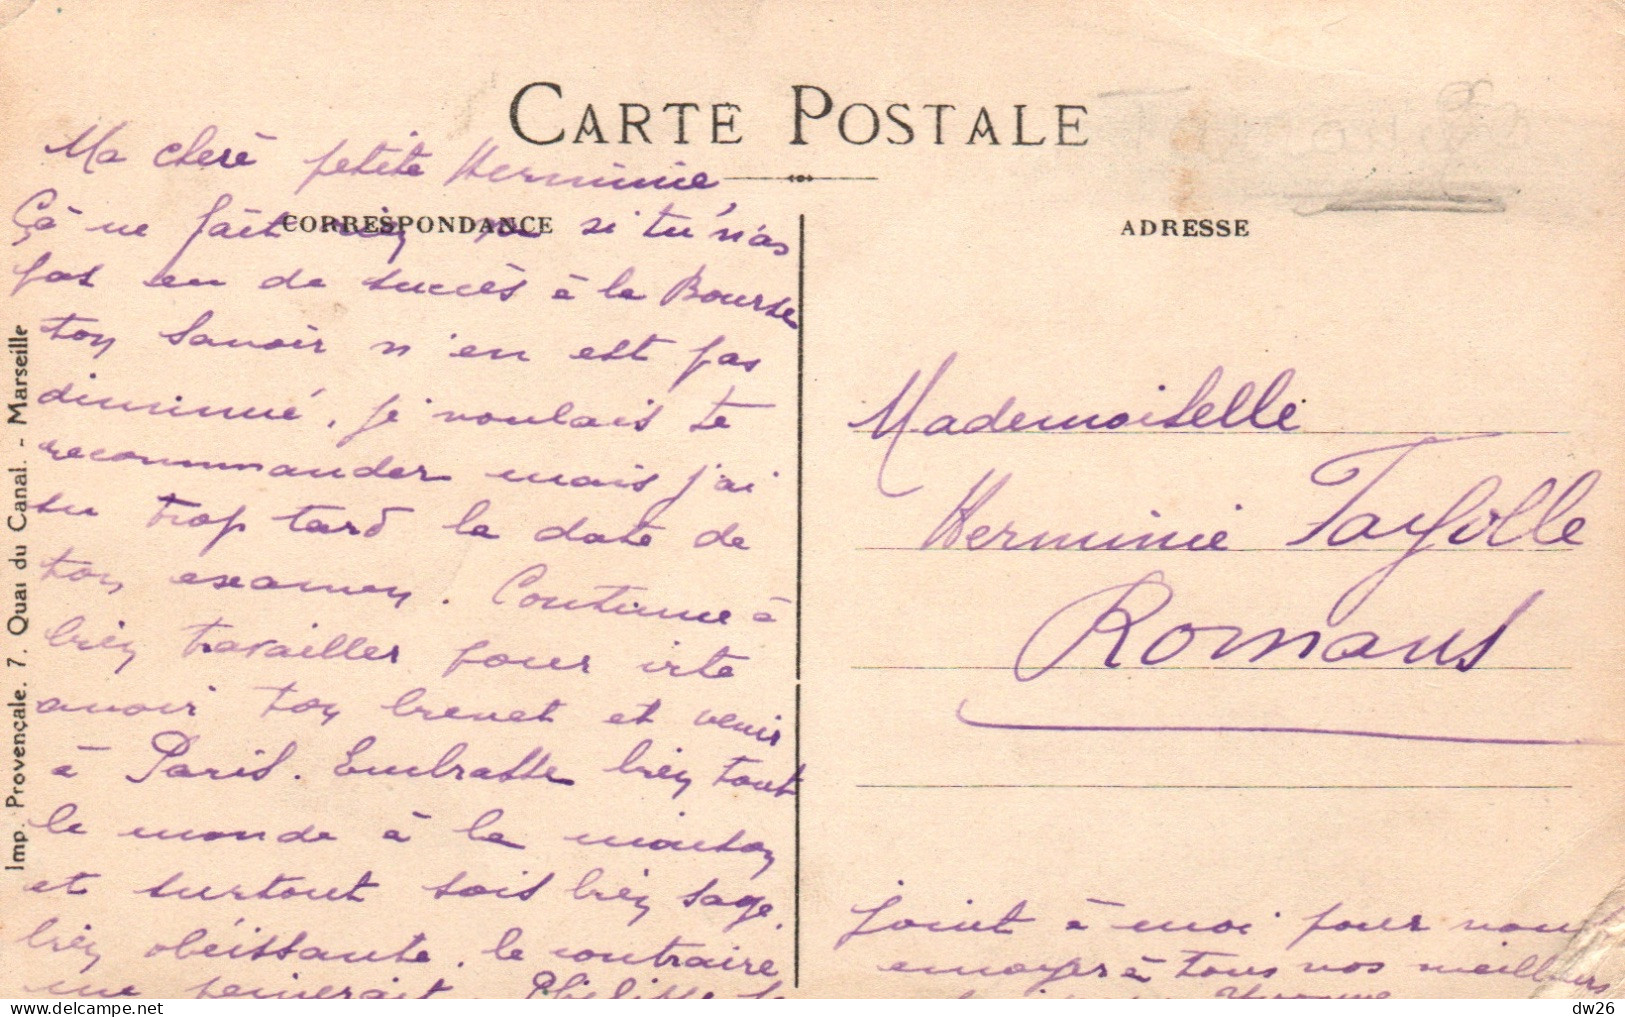 CARTE POSTALE
CORRESPONDANCE
ADRESSE
Ma chere petite Herminie
Ça ne fait rien si tu n'as
pas eu de succès à la Bourse
ton savoir n'en est pas
diminué, je voulais te
recommander mais j'ai
su trop tard la date de
ton examen. Continue à
bien travailler pour vite
avoir ton brevet et venir
à Paris. Embrasse bien tout
le monde à la maison
et surtout sois bien sage,
bien obéissante. le contraire
me peinerait. Philippe se
joint à moi pour vous
envoyer à tous nos meilleurs
Yvonne
Mademoiselle
Herminie Fayolle
Romans
Imp. Provençale. 7. Quai du Canal. - Marseille
dw26